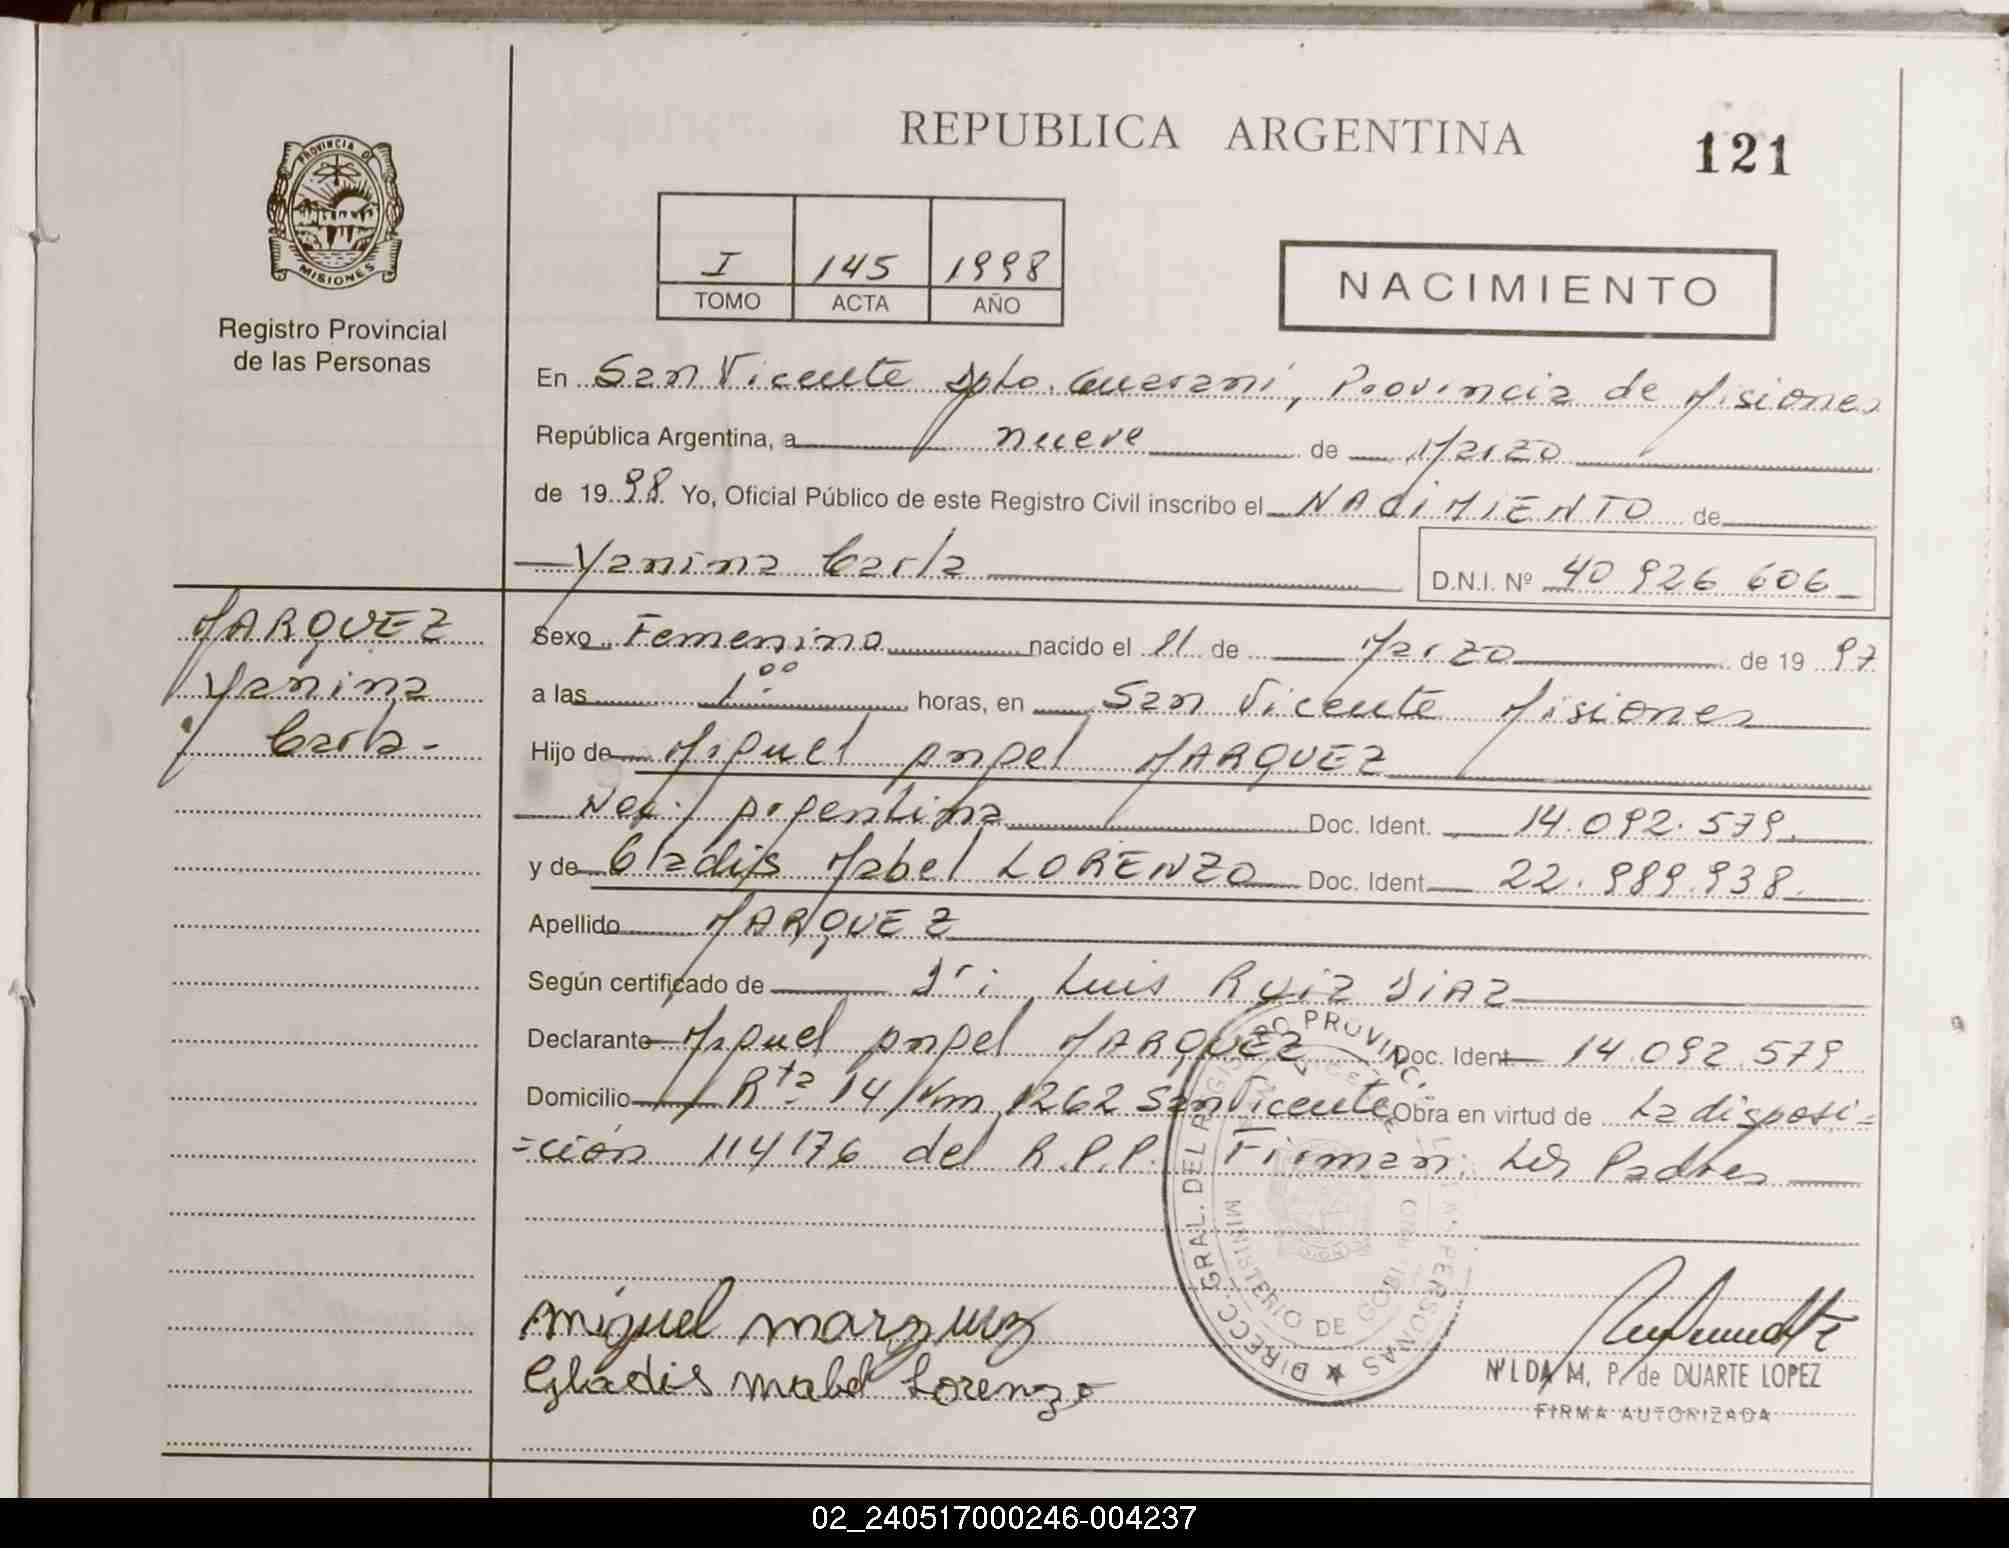 PROVINCIA DE
MISIONES
Registro Provincial
de las Personas
REPUBLICA ARGENTINA
121
I 145 1998
TOMO ACTA AÑO
NACIMIENTO
En San Vicente Dpto. Guaraní, Provincia de Misiones
República Argentina, a nueve de Marzo
de 1998. Yo, Oficial Público de este Registro Civil inscribo el NACIMIENTO de
Yanina Carla D.N.I. Nº 40 926 606
MARQUEZ
Yanina
Carla-
Sexo Femenino nacido el 11 de Marzo de 1997
a las 1:00 horas, en San Vicente Misiones
Hijo de Miguel Angel MARQUEZ
Nac: Argentina Doc. Ident. 14.092.579.
y de Gladis Mabel LORENZO Doc. Ident. 22.989.938.
Apellido MARQUEZ
Según certificado de Dr: Luis Ruiz DiAZ
Declarante Miguel Angel MARQUEZ Doc. Ident. 14.092.579
Domicilio Rta 14 Km 1262 San Vicente Obra en virtud de La disposi=
=ción 114176 del R.P.P. Firman: Los Padres
DIRECC. GRAL. DEL REGISTRO PROVINC. PERSONAS
MINISTERIO DE GOBI
Miguel Marquez
Gladis Mabel Lorenzo
NILDA M. P. de DUARTE LOPEZ
FIRMA AUTORIZADA
02_240517000246-004237